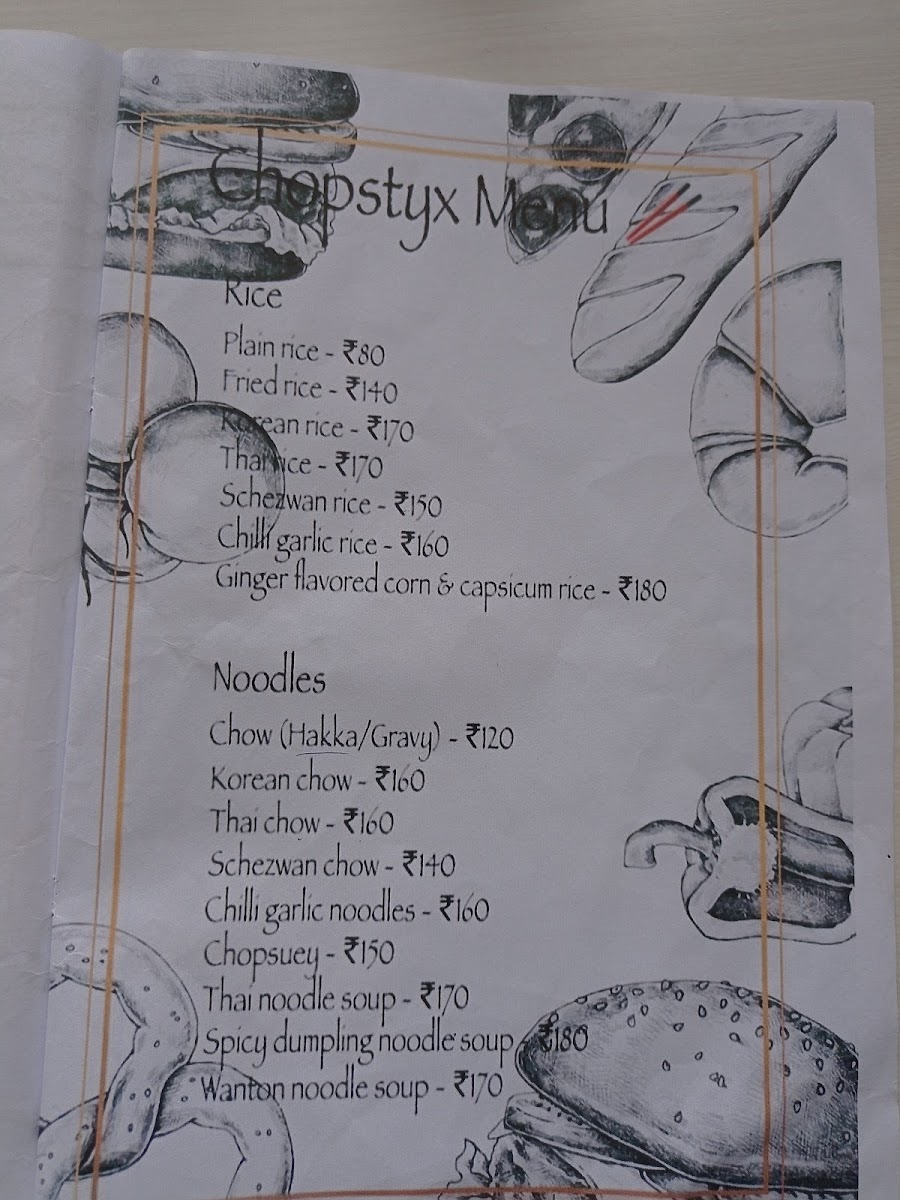 Chopstyx Menu
Rice
Plain rice - ₹80
Fried rice - ₹140
Korean rice - ₹170
Thai rice - ₹170
Schezwan rice - ₹150
Chilli garlic rice - ₹160
Ginger flavored corn & capsicum rice - ₹180
Noodles
Chow (Hakka/Gravy) - ₹120
Korean chow - ₹160
Thai chow - ₹160
Schezwan chow - ₹140
Chilli garlic noodles - ₹160
Chopsuey - ₹150
Thai noodle soup - ₹170
Spicy dumpling noodle soup - ₹180
Wanton noodle soup - ₹170